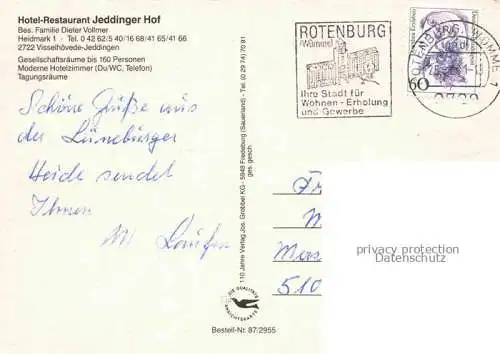 Hotel-Restaurant Jeddinger Hof
Bes. Familie Dieter Vollmer
Heidmark 1 · Tel. 0 42 62/5 40/16 68/41 65/41 66
2722 Visselhövede-Jeddingen
Gesellschaftsräume bis 160 Personen
Moderne Hotelzimmer (Du/WC, Telefon)
Tagungsräume
Schöne Grüße aus
der Lüneburger
Heide sendet
Ihnen
M. Laufer
110 Jahre Verlag Jos. Grobbel KG · 5948 Fredeburg (Sauerland) · Tel. (0 29 74) 70 91
ges. gesch.
DIE QUALITÄTS
ANSICHTSKARTE
Bestell-Nr. 87/2955
ROTENBURG
(Wümme)
Ihre Stadt für
Wohnen - Erholung
und Gewerbe
ROTENBURG, WÜMME 1
60
Fr
M
510
privacy protection
Datenschutz